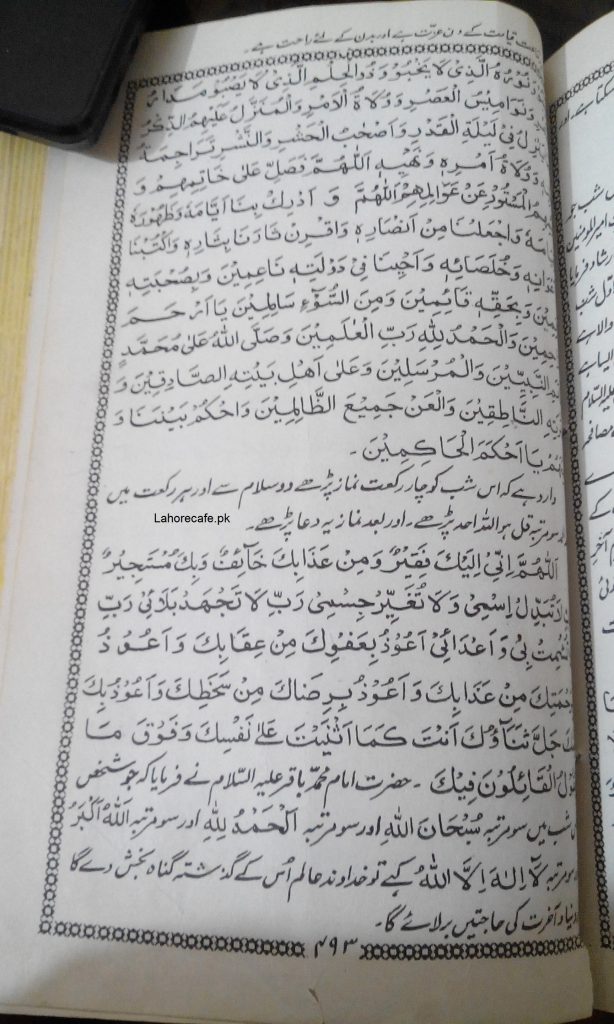 قیامت کے دن عزت ہے اور بدن کے لئے راحت ہے۔
نُوْرُهُ الَّذِیْ لَا يَخْبُوْ وَ ذُو الْحِلْمِ الَّذِیْ لَا يَصْبُوْ مَدَارُ
وَ نَوَامِيْسُ الْعَصْرِ وَ وُلَاةُ الْاَمْرِ وَ الْمُنَزَّلُ عَلَيْهِمُ الذِّكْرُ
فِیْ لَيْلَةِ الْقَدْرِ وَ اَصْحَابُ الْحَشْرِ وَ النَّشْرِ تَرَاجِمَةُ
وَ وُلَاةُ اَمْرِهٖ وَ نَهْيِهٖ اَللّٰهُمَّ فَصَلِّ عَلٰى خَاتِمِهِمْ وَ
الْمَسْتُوْرِ عَنْ عَوَالِمِهِمْ اَللّٰهُمَّ وَ اَدْرِكْ بِنَا اَيَّامَهٗ وَ ظُهُوْرَهٗ
وَ اجْعَلْنَا مِنْ اَنْصَارِهٖ وَ اقْرِنْ ثَارَنَا بِثَارِهٖ وَ اكْتُبْنَا
وَ خُلَصَائِهٖ وَ اَحْيِنَا فِیْ دَوْلَتِهٖ نَاعِمِيْنَ وَ بِصُحْبَتِهٖ
وَ بِحَقِّهٖ قَائِمِيْنَ وَ مِنَ السُّوْٓءِ سَالِمِيْنَ يَا اَرْحَمَ
وَ الْحَمْدُ لِلّٰهِ رَبِّ الْعٰلَمِيْنَ وَ صَلَّى اللهُ عَلٰى مُحَمَّدٍ
النَّبِيِّيْنَ وَ الْمُرْسَلِيْنَ وَ عَلٰى اَهْلِ بَيْتِهِ الصَّادِقِيْنَ وَ
النَّاطِقِيْنَ وَ الْعَنْ جَمِيْعَ الظَّالِمِيْنَ وَ احْكُمْ بَيْنَنَا وَ
يَا اَحْكَمَ الْحَاكِمِيْنَ۔
وارد ہے کہ اس شب کو چار رکعت نماز پڑھے دو سلام سے اور ہر رکعت میں
سو مرتبہ قل ہو اللہ احد پڑھے۔ اور بعد نماز یہ دعا پڑھے۔
Lahorecafe.pk
اَللّٰهُمَّ اِنِّیْ اِلَيْكَ فَقِيْرٌ وَ مِنْ عَذَابِكَ خَآئِفٌ وَ بِكَ مُسْتَجِيْرٌ
لَا تُبَدِّلْ اِسْمِیْ وَ لَا تُغَيِّرْ جِسْمِیْ رَبِّ لَا تَجْهَدْ بَلَائِیْ رَبِّ
تُشْمِتْ بِیْ وَ اَعْدَائِیْ اَعُوْذُ بِعَفْوِكَ مِنْ عِقَابِكَ وَ اَعُوْذُ
مِنْ عَذَابِكَ وَ اَعُوْذُ بِرِضَاكَ مِنْ سَخَطِكَ وَ اَعُوْذُ بِكَ
جَلَّ ثَنَاۤؤُكَ اَنْتَ كَمَا اَثْنَيْتَ عَلٰى نَفْسِكَ وَ فَوْقَ مَا
الْقَائِلُوْنَ فِيْكَ ۔ حضرت امام محمد باقر علیہ السلام نے فرمایا کہ جو شخص
شب میں سو مرتبہ سُبْحَانَ اللهِ اور سو مرتبہ اَلْحَمْدُ لِلّٰهِ اور سو مرتبہ اَللهُ اَكْبَرُ
سو مرتبہ لَاۤ اِلٰهَ اِلَّا اللهُ کہے تو خداوند عالم اُس کے گذشتہ گناہ بخش دے گا
دنیا و آخرت کی حاجتیں بر لائے گا۔
۴۹۳